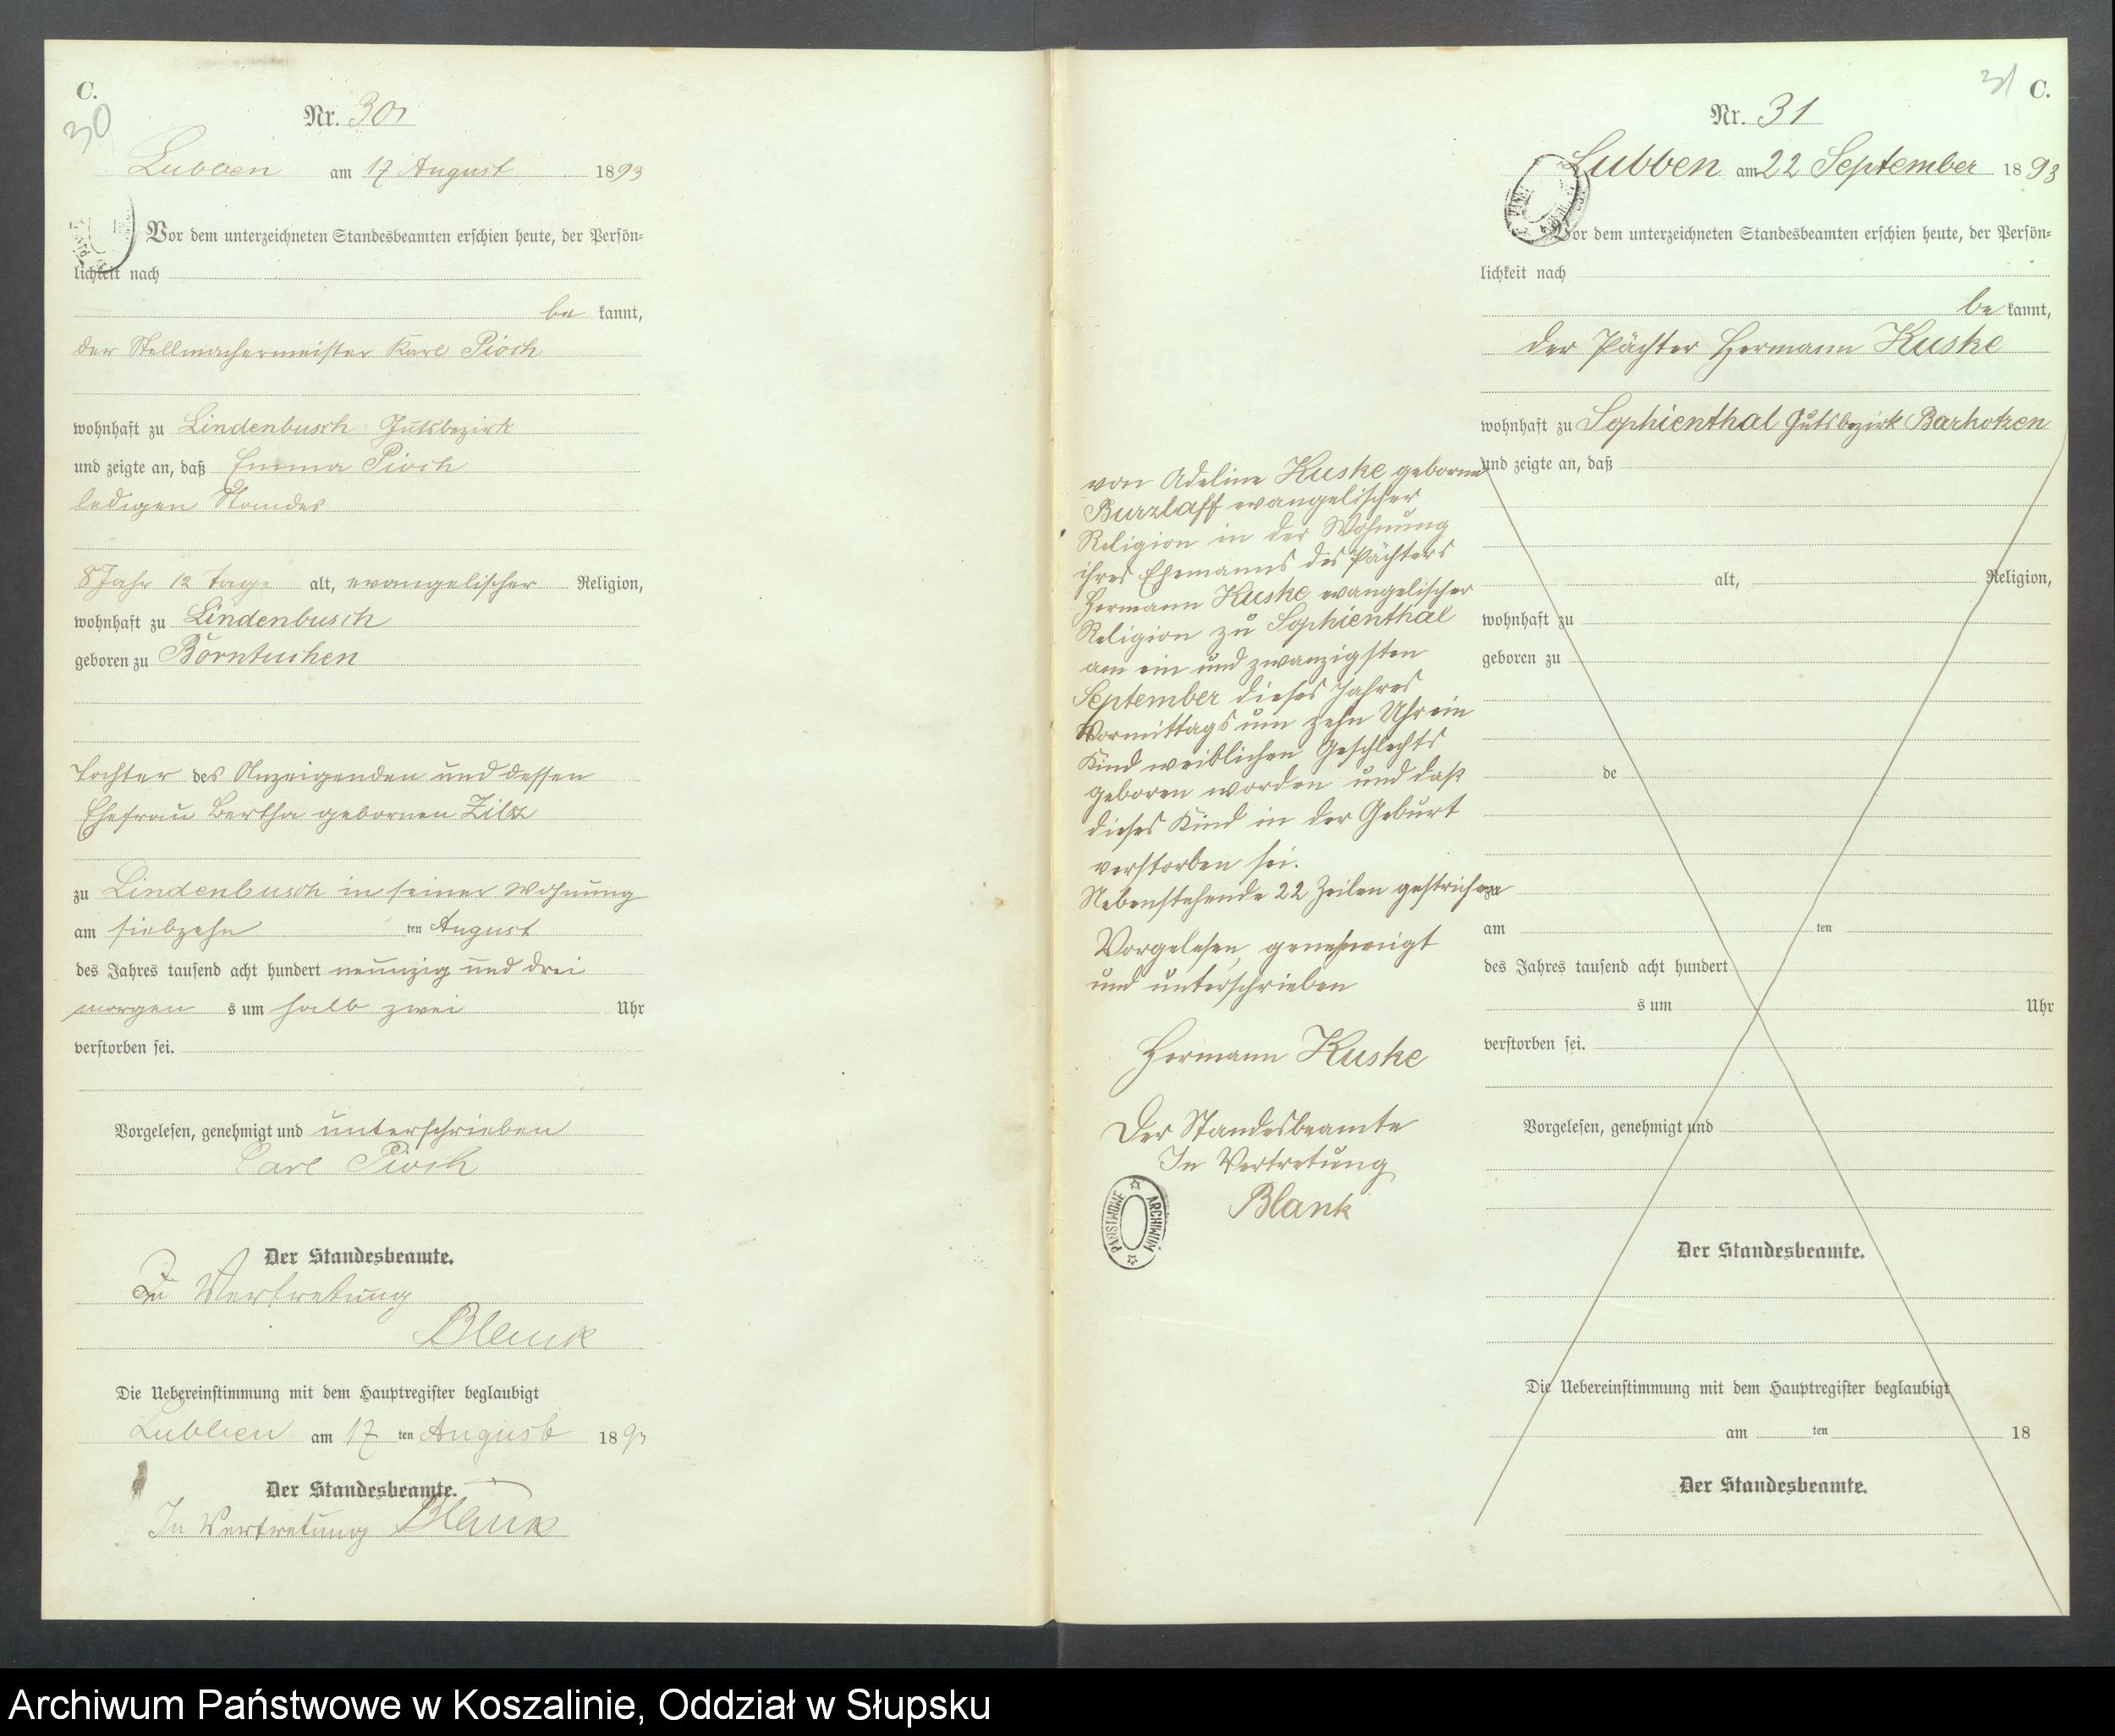 C.
30
Nr. 30
Lubben am 17 August 1893
Vor dem unterzeichneten Standesbeamten erschien heute, der Persön-
lichkeit nach
be kannt,
der Stellmachermeister Karl Pioch
wohnhaft zu Lindenbusch Gutsbezirk
und zeigte an, daß Emma Pioch
ledigen Standes
8 Jahr 12 Tage alt, evangelischer Religion,
wohnhaft zu Lindenbusch
geboren zu Borntuchen
Tochter des Anzeigenden und dessen
Ehefrau Bertha gebornen
zu Lindenbusch in seiner Wohnung
am siebzehn ten August
des Jahres tausend acht hundert neunzig und drei
morgen s um halb zwei Uhr
verstorben sei.
Vorgelesen, genehmigt und unterschrieben
Carl Pioch
Der Standesbeamte.
In Vertretung
Blank
Die Uebereinstimmung mit dem Hauptregister beglaubigt
Lubben am 17 ten August 1893
Der Standesbeamte.
In Vertretung Blank
31 C.
Nr. 31
Lubben am 22 September 1893
Vor dem unterzeichneten Standesbeamten erschien heute, der Persön-
lichkeit nach
be kannt,
der Pächter Hermann Kuske
wohnhaft zu Sophienthal Gutsbezirk Barkotzen
und zeigte an, daß
alt, Religion,
wohnhaft zu
geboren zu
de
zu
am ten
des Jahres tausend acht hundert
s um Uhr
verstorben sei.
Vorgelesen, genehmigt und
Der Standesbeamte.
Die Uebereinstimmung mit dem Hauptregister beglaubigt
am ten 18
Der Standesbeamte.
von Adeline Kuske geborne
Burzlaff evangelischer
Religion in der Wohnung
ihres Ehemanns des Pächters
Hermann Kuske evangelischer
Religion zu Sophienthal
am ein und zwanzigsten
September dieses Jahres
Vormittags um zehn Uhr ein
Kind weiblichen Geschlechts
geboren worden und daß
dieses Kind in der Geburt
verstorben sei.
Nebenstehende 22 Zeilen gestrichen
Vorgelesen, genehmigt
und unterschrieben
Hermann Kuske
Der Standesbeamte
In Vertretung
Blank
ARCHIWUM PAŃSTWOWE
Archiwum Państwowe w Koszalinie, Oddział w Słupsku